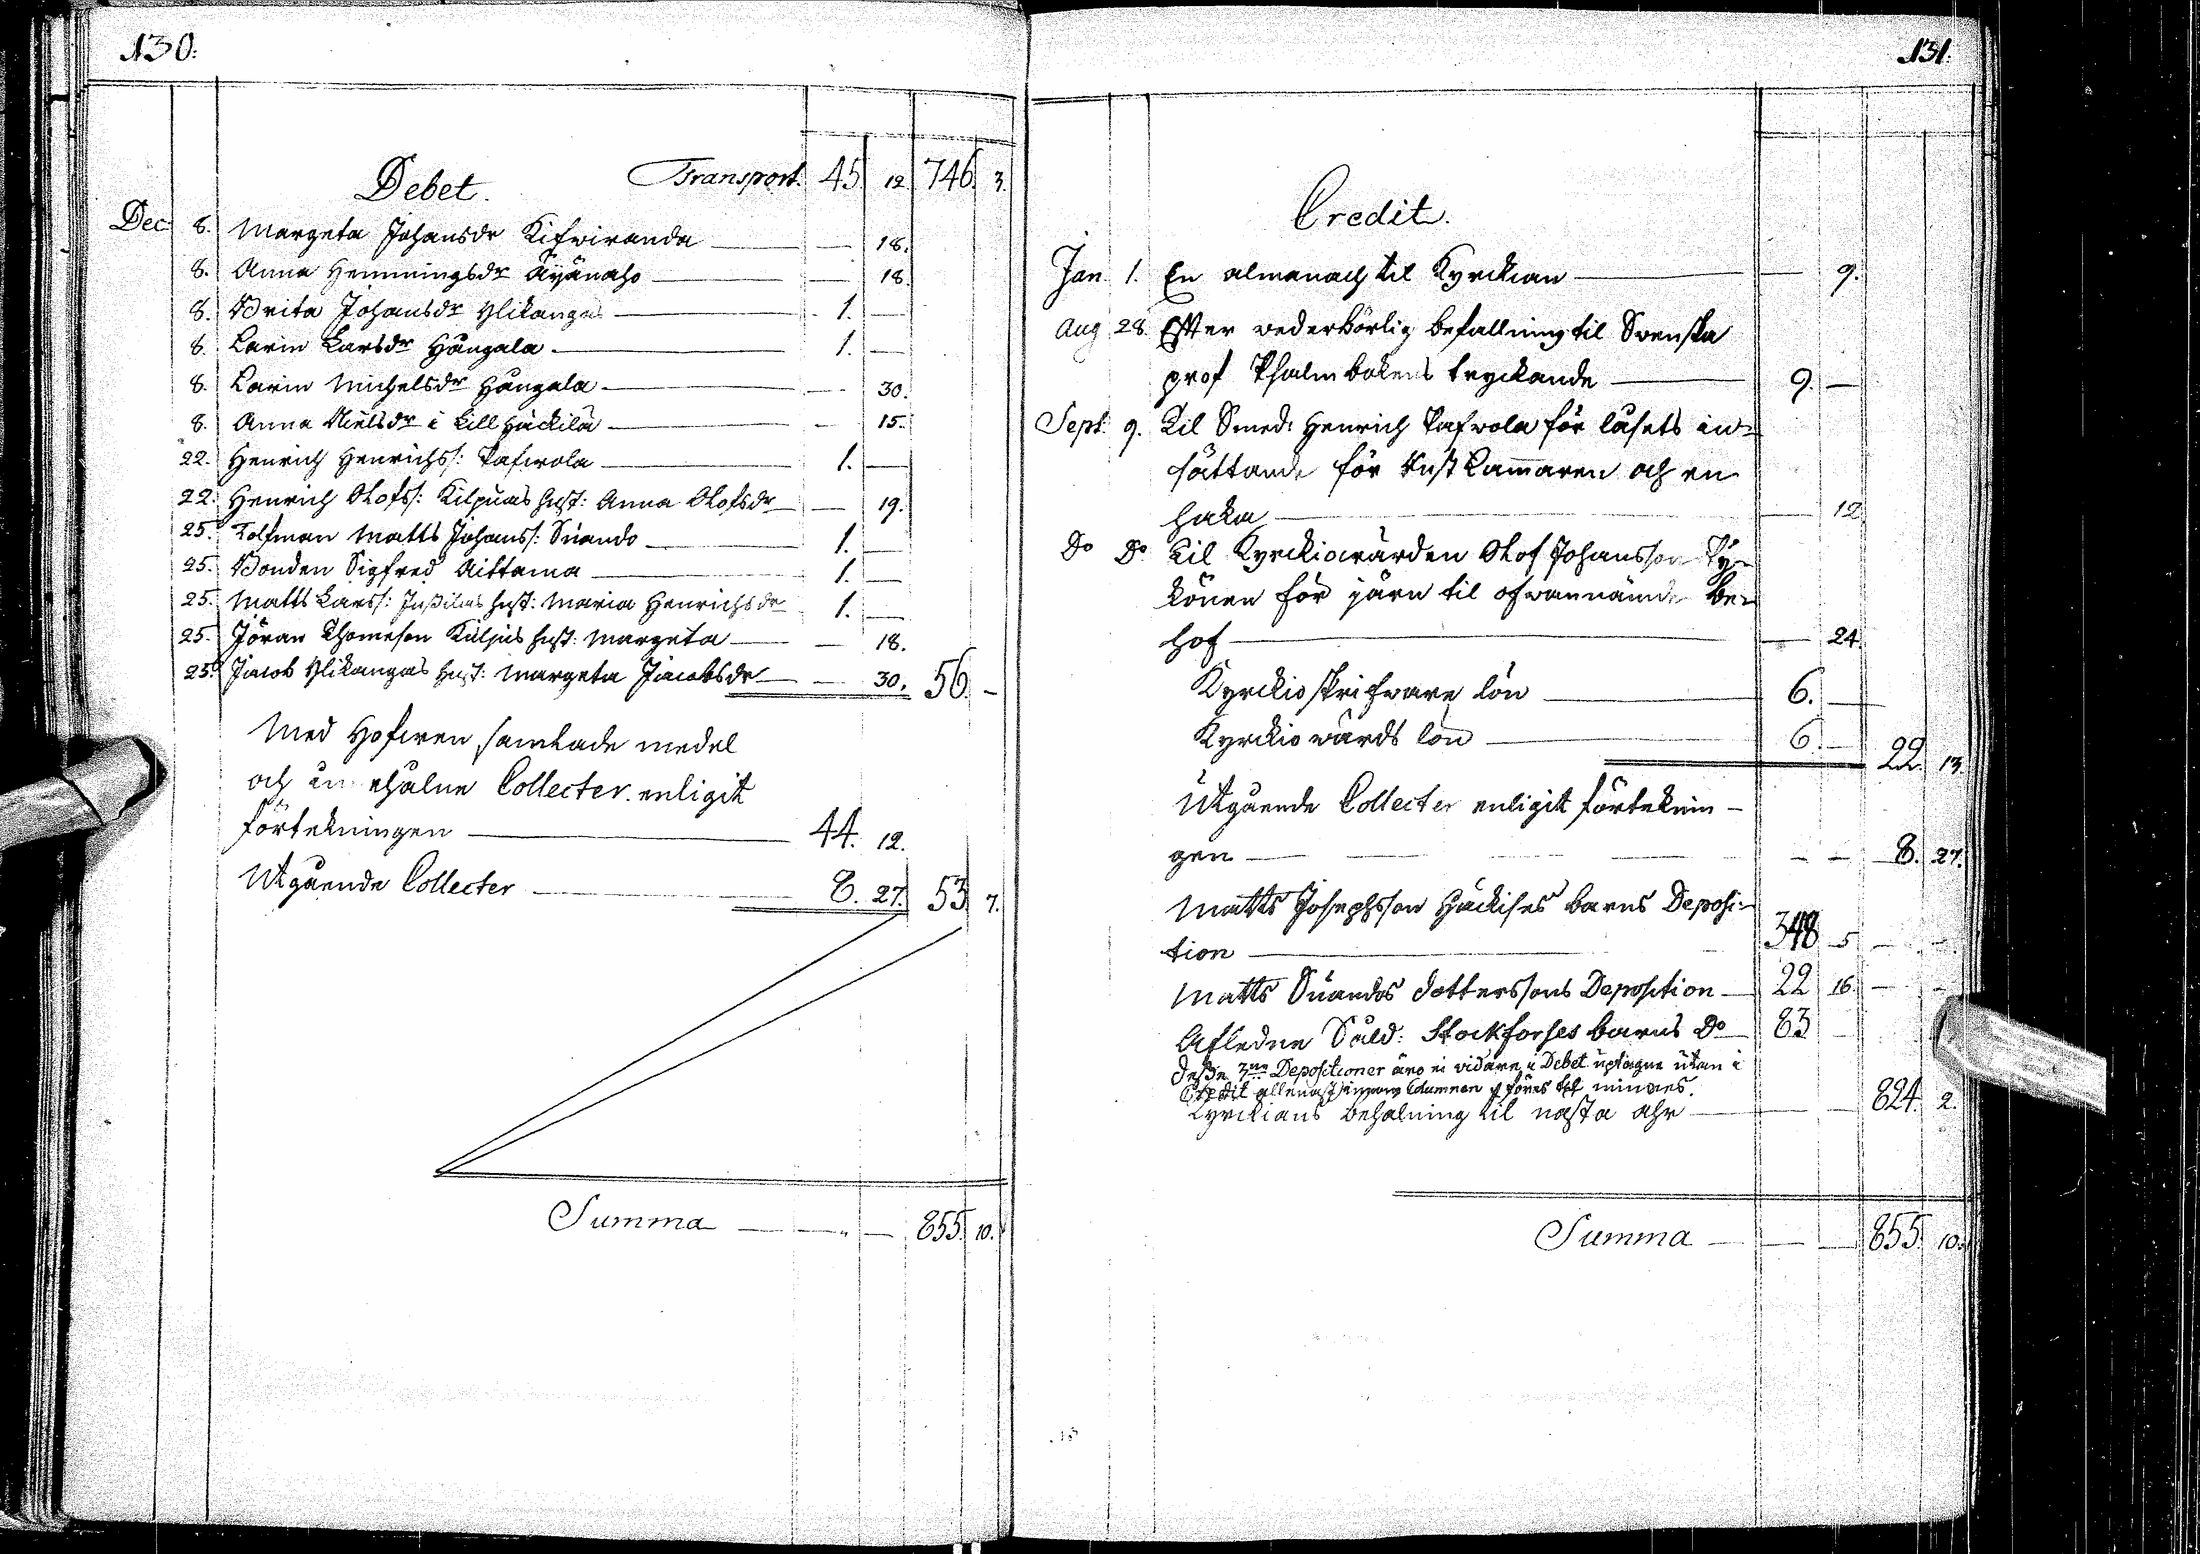 130.
Debet. Transport. 45 12. 746. 3.
Dec. 8. Margeta Johansdr Kifwiranda — 18.
8. Anna Hemmingsdr Äyänaho — 18.
8. Brita Johansdr Ylikangas 1. —
8. Carin Larsdr Hångala 1. —
8. Carin Michelsdr Hångala — 30.
8. Anna Nielsdr i Lill Häckilä — 15.
22. Henrich Henrichss: Pafwola 1. —
22. Henrich Olofss: Kilpuas hust: Anna Olofsdr — 19.
25. Tolfman Matts Johanss: Suando 1. —
25. Bonden Sigfred Aittama 1. —
25. Matts Larss: Jußilas hust: Maria Henrichsdr 1. —
25. Jöran Thomeson Kuljus hust: Margeta — 18.
25. Jacob Ylikangas hust: Margeta Jacobsdr — 30. 56. —
Med Hofwen samlade medel
och Collecter enligit
förtekningen 44. 12.
Utgående Collecter 8. 27. 53 7.
Summa — — 855. 10.
131.
Credit.
Jan. 1. En almanach til Kyrckian — 9.
Aug 28. Efter wederbörlig befallning til Swenska
prof Psalmbokens tryckande 9. —
Sept. 9. Til Smed: Henrich Pafwola för låsets in-
sättande för Rust Cammaren och en
haka — 12
Do Do Til Kyrckiowärden Olof Johansson Py-
könen för järn til ofwannämde be-
hof — 24.
Kyrckioskrifware lön 6. —
Kyrckiowärds lön 6. — 22. 13.
Utgående Collecter enligit förteknin-
gen — — 8. 27.
Matts Josephsson Häckises barns Deposi-
tion 348 5 — —
Matts Suandos dottersons Deposition 22 16. — —
Afledne Såld: Stockforses barns Do 83 —
deße 3ne Depositioner äro ei vidare i Debet uptagne utan i
Credit allenast Columnen föres til minnes.
Kyrckians behålning til nästa åhr — — 824. 2.
Summa — — 855. 10.